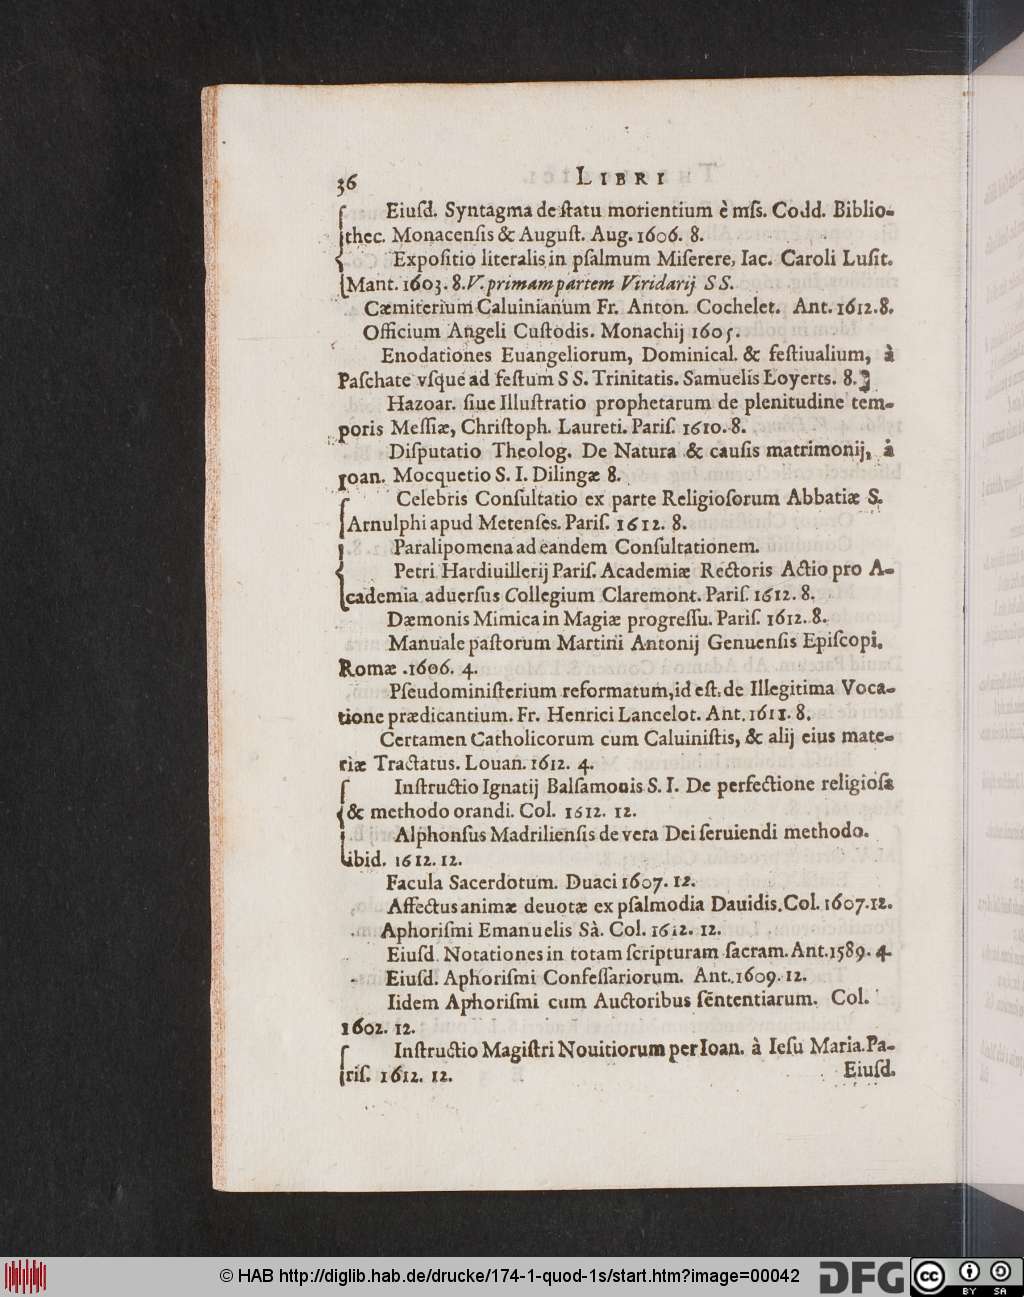 36 LIBRI
Eiuſd. Syntagma de ſtatu morientium è mſs. Codd. Biblio-
thec. Monacenſis & Auguſt. Aug. 1606. 8.
Expoſitio literalis in pſalmum Miſerere, Iac. Caroli Luſit.
Mant. 1603. 8. V. primam partem Viridarij SS.
Cæmiterium Caluinianum Fr. Anton. Cochelet. Ant. 1612. 8.
Officium Angeli Cuſtodis. Monachij 1605.
Enodationes Euangeliorum, Dominical. & feſtiualium, à
Paſchate vſque ad feſtum SS. Trinitatis. Samuelis Loyerts. 8.
Hazoar. ſiue Illuſtratio prophetarum de plenitudine tem-
poris Meſſiæ, Chriſtoph. Laureti. Pariſ. 1610. 8.
Diſputatio Theolog. De Natura & cauſis matrimonij, à
Ioan. Mocquetio S. I. Dilingæ 8.
Celebris Conſultatio ex parte Religioſorum Abbatiæ S.
Arnulphi apud Metenſes. Pariſ. 1612. 8.
Paralipomena ad eandem Conſultationem.
Petri Hardiuillerij Pariſ. Academiæ Rectoris Actio pro A-
cademia aduerſus Collegium Claremont. Pariſ. 1612. 8.
Dæmonis Mimica in Magiæ progreſſu. Pariſ. 1612. 8.
Manuale paſtorum Martini Antonij Genuenſis Epiſcopi.
Romæ . 1606. 4.
Pſeudominiſterium reformatum, id eſt: de Illegitima Voca-
tione prædicantium. Fr. Henrici Lancelot. Ant. 1611. 8.
Certamen Catholicorum cum Caluiniſtis, & alij eius mate-
riæ Tractatus. Louan. 1612. 4.
Inſtructio Ignatij Balſamonis S. I. De perfectione religioſa
& methodo orandi. Col. 1612. 12.
Alphonſus Madrilienſis de vera Dei ſeruiendi methodo.
ibid. 1612. 12.
Facula Sacerdotum. Duaci 1607. 12.
Affectus animæ deuotæ ex pſalmodia Dauidis. Col. 1607. 12.
Aphoriſmi Emanuelis Sà. Col. 1612. 12.
Eiuſd. Notationes in totam ſcripturam ſacram. Ant. 1589. 4.
Eiuſd. Aphoriſmi Confeſſariorum. Ant. 1609. 12.
Iidem Aphoriſmi cum Auctoribus ſententiarum. Col.
1602. 12.
Inſtructio Magiſtri Nouitiorum per Ioan. à Ieſu Maria. Pa-
riſ. 1612. 12.
Eiuſd.
© HAB http://diglib.hab.de/drucke/174-1-quod-1s/start.htm?image=00042
DFG
cc BY SA